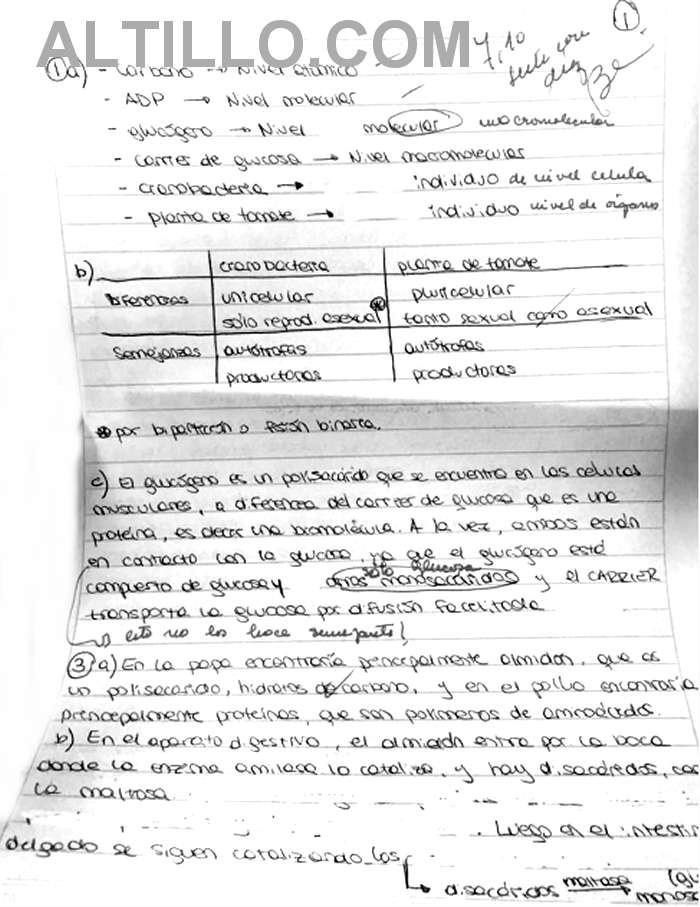 ALTILLO.COM
1
7,10
siete con diez
1 a) - Carbono → Nivel atómico
- ADP → Nivel molecular
- glucógeno → Nivel molecular macromolecular
- carrier de glucosa → Nivel macromolecular
- cianobacteria → individuo de nivel celular
- planta de tomate → individuo nivel de órganos
b) cianobacteria planta de tomate
Diferencias unicelular pluricelular
sólo reprod. asexual tanto sexual como asexual
Semejanzas autótrofas autótrofas
productoras productoras
* por bipartición o fisión binaria.
c) El glucógeno es un polisacárido que se encuentra en las células
musculares, a diferencia del carrier de glucosa que es una
proteína, es decir una biomolécula. A la vez, ambos están
en contacto con la glucosa, ya que el glucógeno está
sólo glucosa
compuesto de glucosa y otros monosacáridos y el CARRIER
transporta la glucosa por difusión facilitada
esto no los hace semejantes!
3 a) En la papa encontraría principalmente almidón, que es
un polisacárido, hidratos de carbono, y en el pollo encontraría
principalmente proteínas, que son polímeros de aminoácidos.
b) En el aparato digestivo, el almidón entra por la boca
donde la enzima amilasa lo cataliza, y hay disacáridos,
la maltosa
. Luego en el intestin
delgado se siguen catalizando los
↳ disacáridos maltasa monos